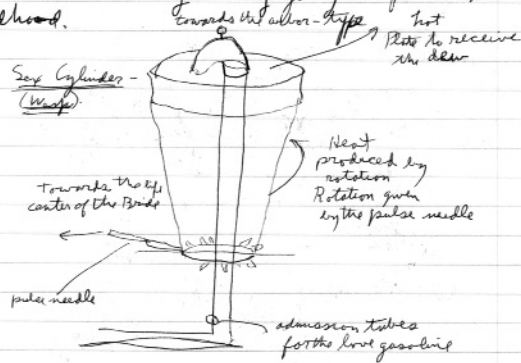 towards the arbor-type
hot
Plate to receive
the dew
Sex Cylinder -
(Wasp).
Heat
produced by
rotation
Rotation given
by the pulse needle
Towards the
center of the Bride
pulse needle
admission tubes
for the love gasoline